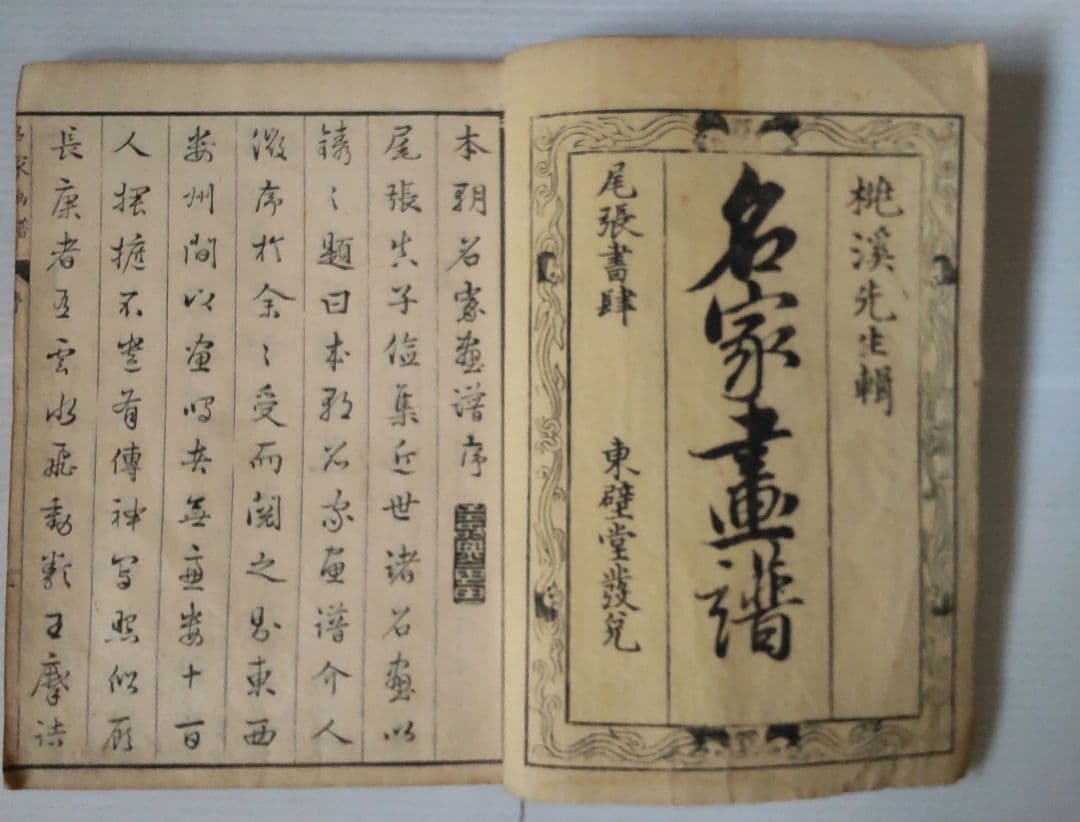 桃溪先生輯
名家畫譜
尾張書肆 東壁堂發兌
本朝名家畫譜序
尾張子儉集近世諸名畫以
題曰本朝名家畫譜介人
徵序於余〻受而閱之則東西
数州間以畫鳴者無慮数十百
人摭不遺有傳神写照似顧
長康者有雲水飛動類王摩詰
名家画譜 序